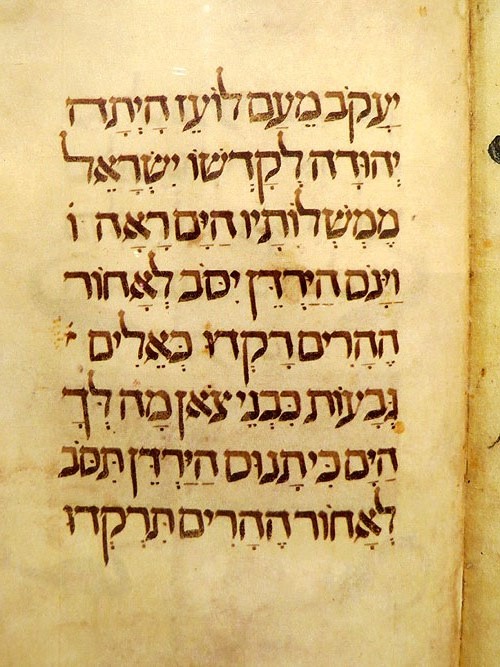 יַעֲקֹב מֵעַם לוֹעֵז הָיְתָה
יְהוּדָה לְקָדְשׁוֹ יִשְׂרָאֵל
מַמְשְׁלוֹתָיו הַיָּם רָאָה ו
וַיָּנֹס הַיַּרְדֵּן יִסֹּב לְאָחוֹר
הֶהָרִים רָקְדוּ כְאֵלִים
גְּבָעוֹת כִּבְנֵי צֹאן מַה לְּךָ
הַיָּם כִּי תָנוּס הַיַּרְדֵּן תִּסֹּב
לְאָחוֹר הֶהָרִים תִּרְקְדוּ